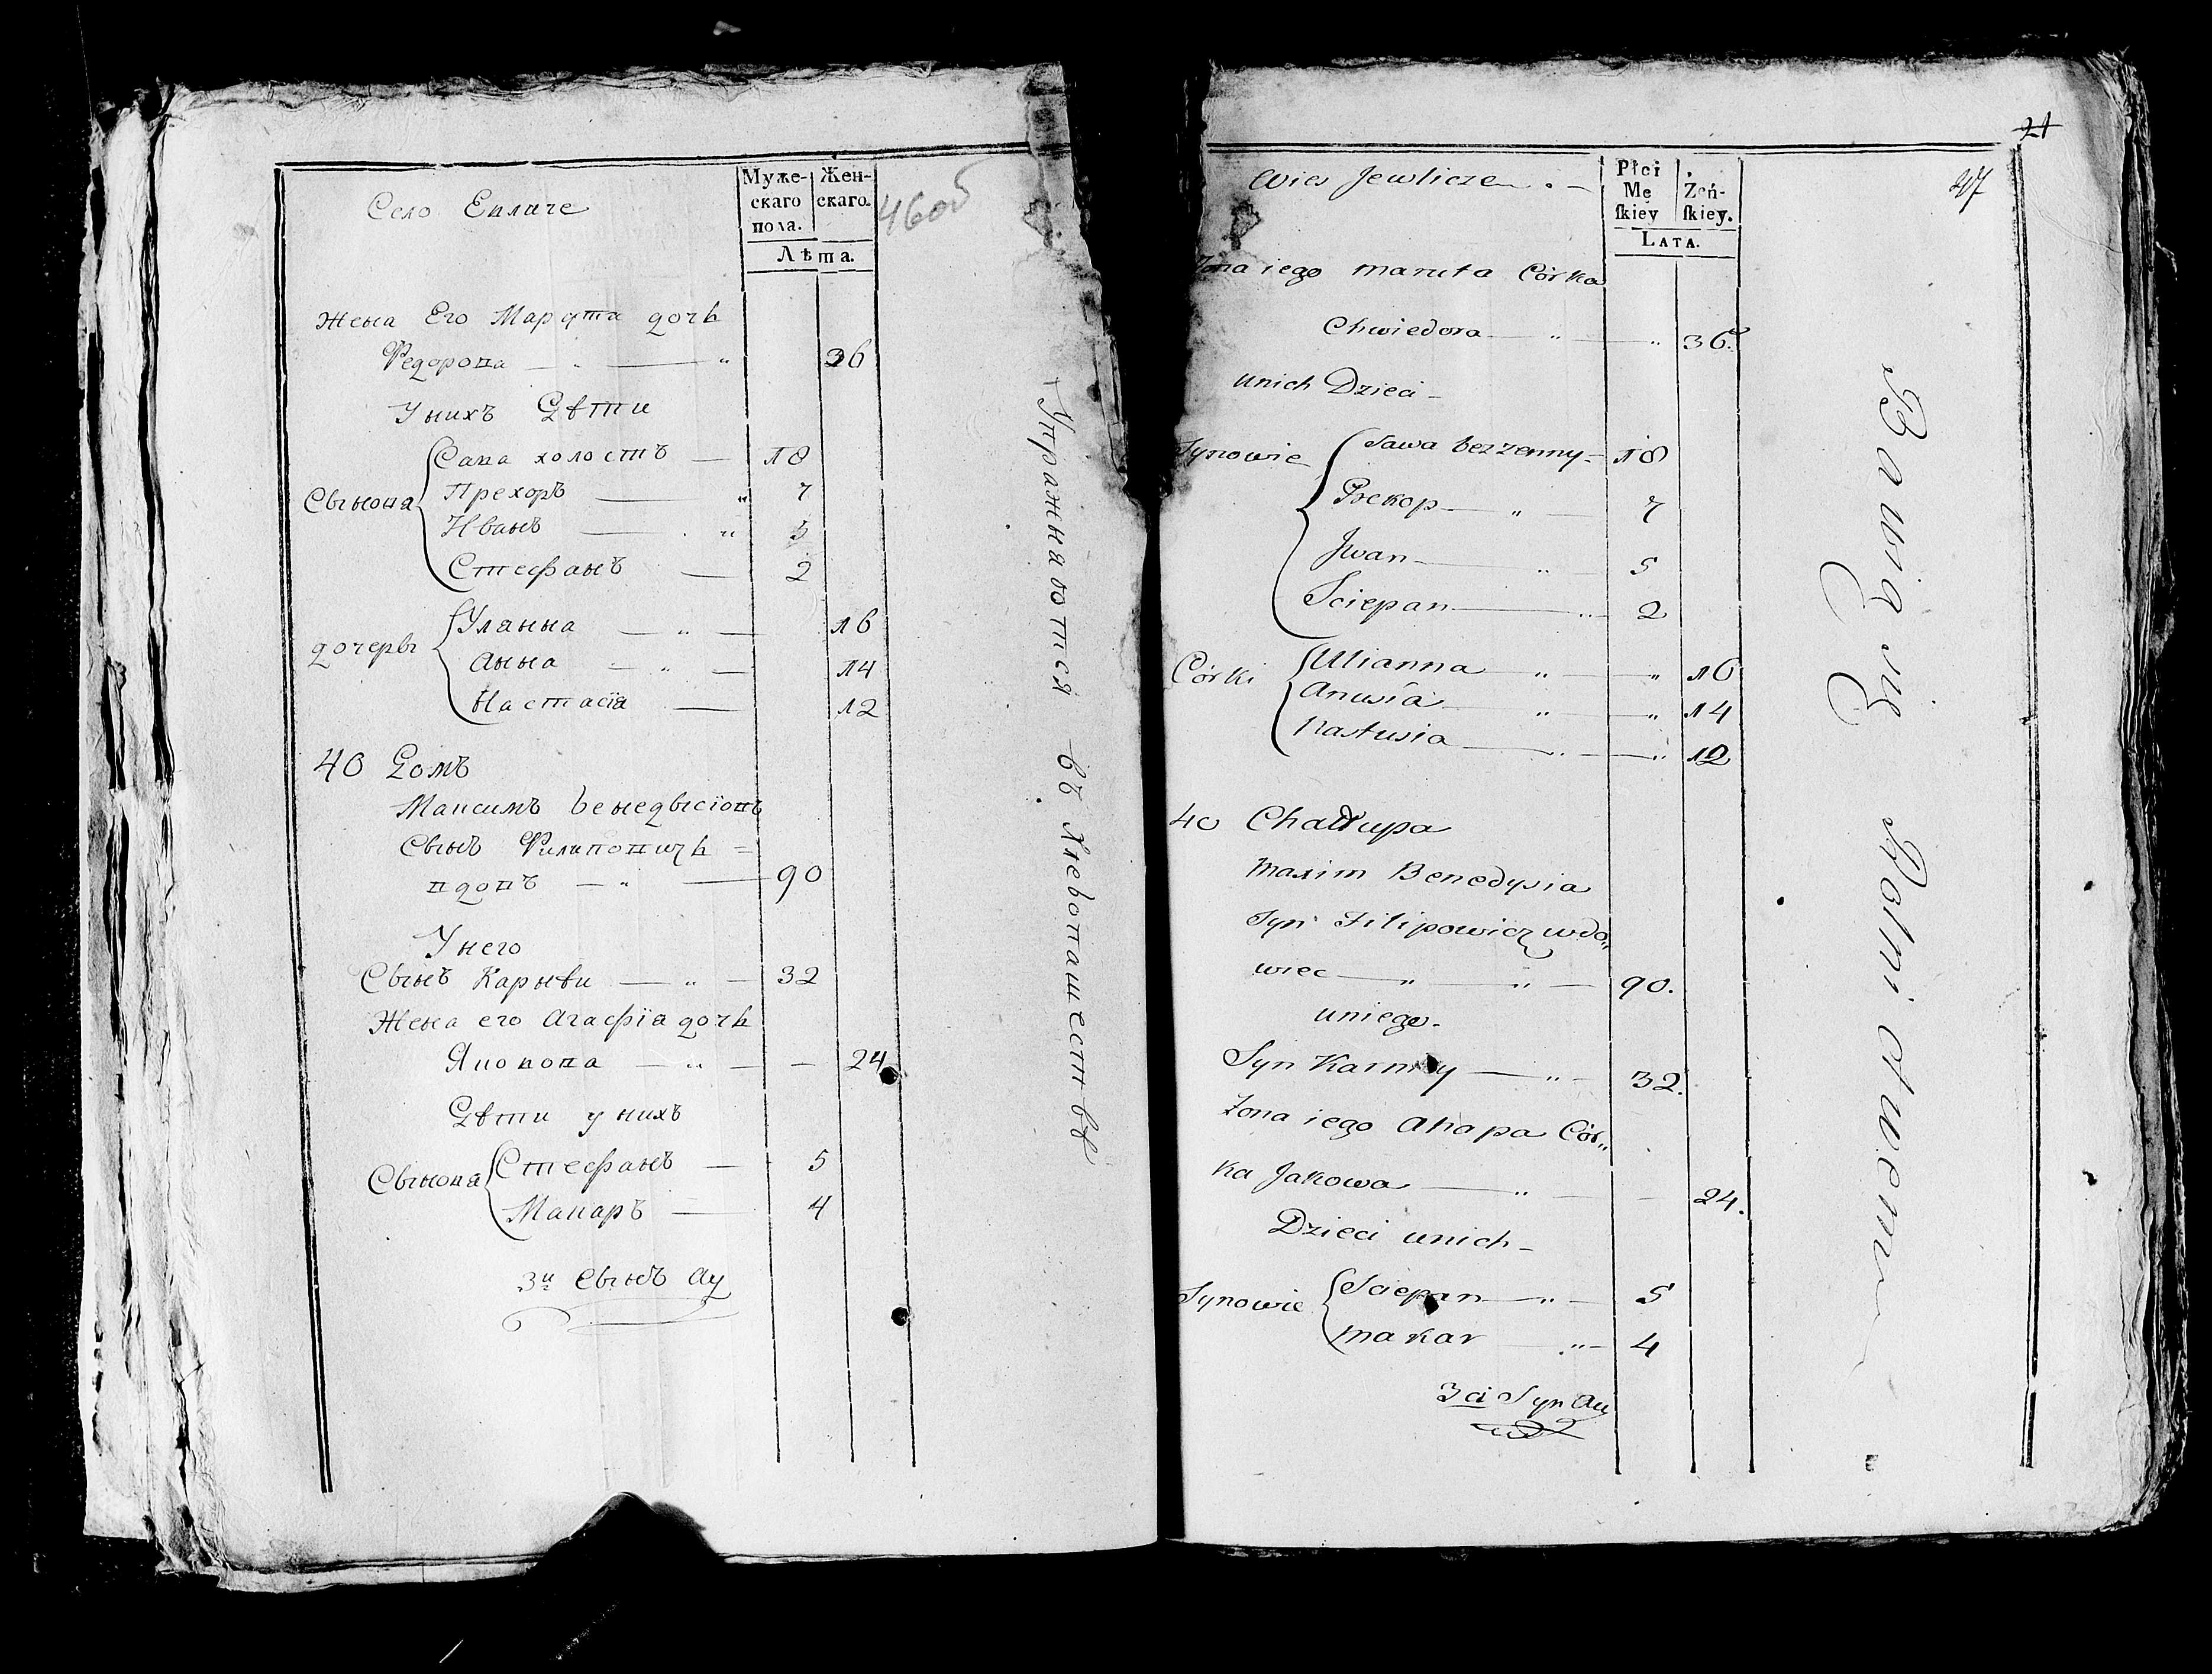 Село Евличе
Муже-
скаго
пола.
Жен-
скаго.
Лѣта.
46об
Жена Его Марута дочь
Федорова — " — " 36
У нихъ Дѣти
Сыновя
Сава холостъ — 18
Прехоръ — " 7
Иванъ — " 5
Стефанъ — 2
дочеры
Уляnна — " — 16
Анна — " — 14
Настасія — 12
40 Домъ
Максимъ Бенедысіовъ
Сынъ Филиповичь =
вдовъ — " — 90
У него
Сынъ Карнѣи — " — 32
Жена его Агафія дочь
Яковова — " — — 24
Дѣти у нихъ
Сыновя
Стефанъ — 5
Макаръ — 4
3й Сынъ Ау
Упражняются въ хлебопашествѣ
21
47
Wies Jewlicze
Płci
Mę
ſkiey
Żeń-
ſkiey.
LATA.
Zona iego Maruta Córka
Chwiedora — " — " 36.
unich Dzieci –
Synowie
Sawa bezzenny – 18
Prekop — " — 7
Jwan — " — 5
Sciepan — " 2
Córki
Ulianna — " — " 16
Anusia — " — " 14
Nastusia — " — " 12
40 Chałłupa
Maxim Benedysia
Syn Filipowicz wdo„
wiec — " — " — 90.
uniego.
Syn Karniey — " – 32.
Zona iego Ahapa Cór„
ka Jakowa — " — — 24.
Dzieci unich –
Synowie
Sciepan — " – 5
Makar — " – 4
3ci Syn Au
Bawią się Rolnictwem